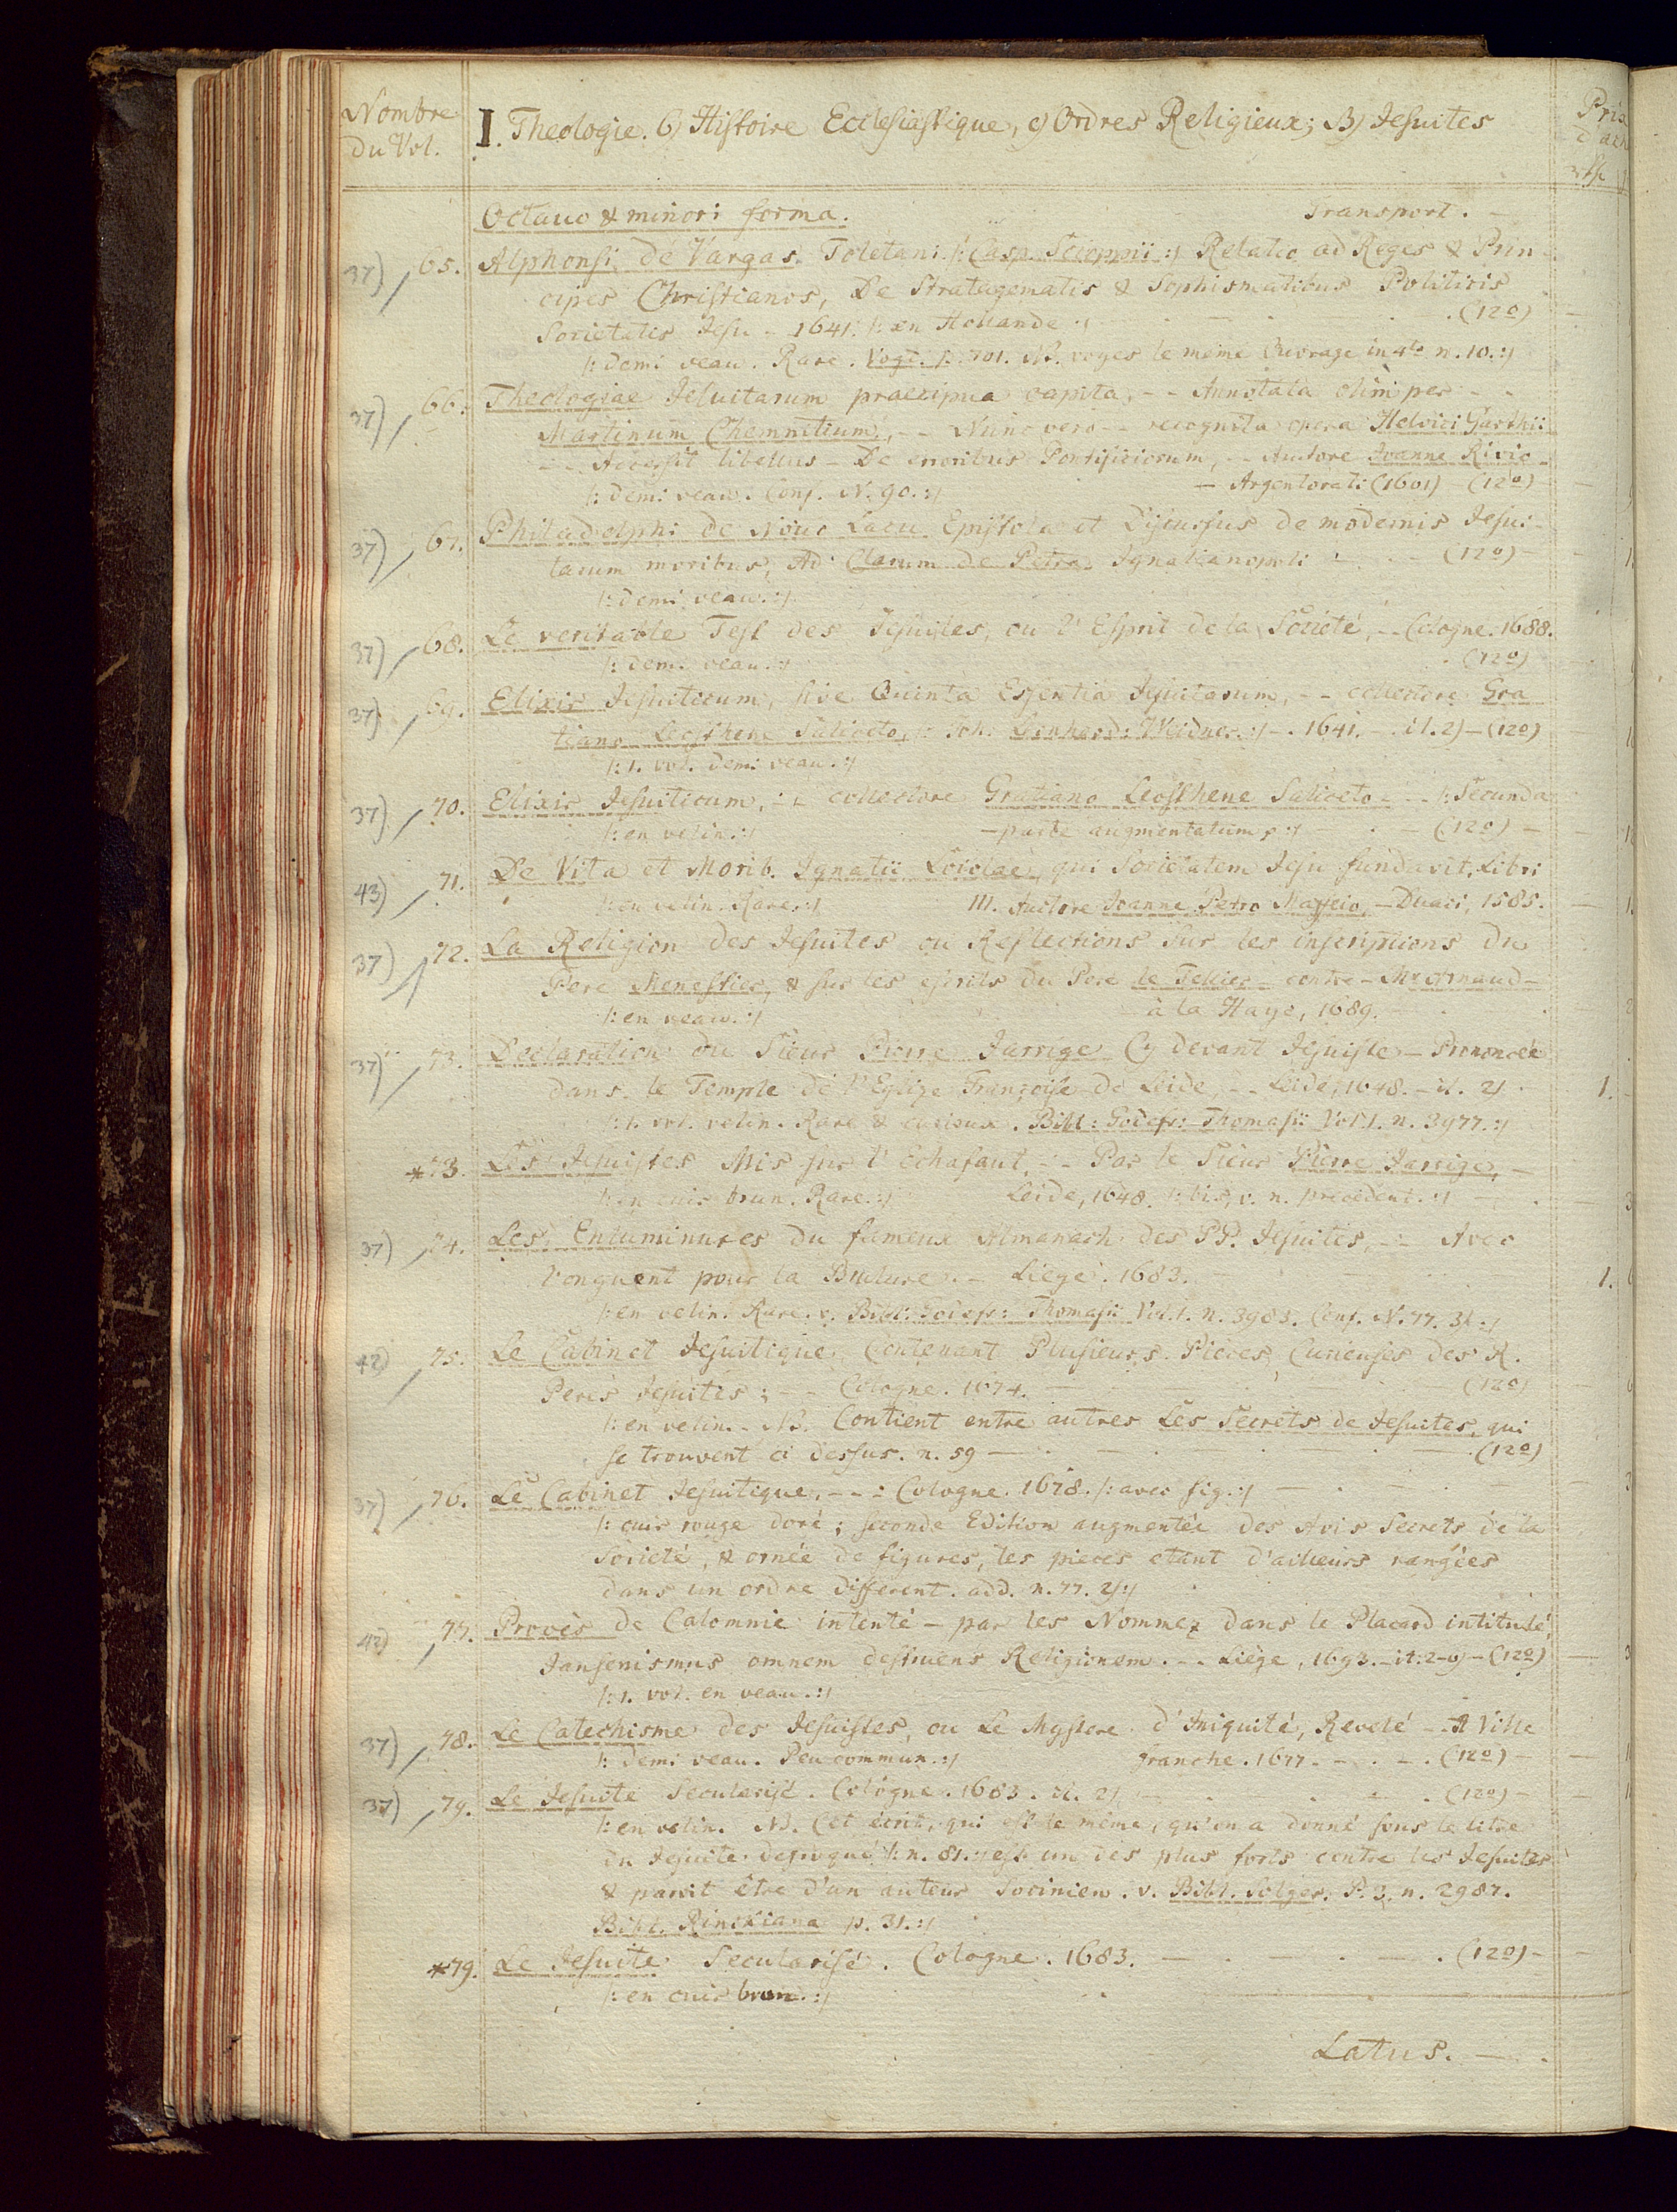 Nombre
du Vol.
I. Theologie. 6) Histoire Ecclesiastique, c) Ordres Religieux; B) Jesuites
Prix
d'ach
Octavo & minori forma. Transport. —
37) 65. Alphonsi de Vargas Toletani /: Casp. Scioppii :/ Relatio ad Reges & Prin-
cipes Christianos, De Stratagematis & Sophismatibus Politicis
Societatis Jesu - 1641. /: en Hollande :/ (12o)
/: demi veau. Rare. Vogt. p. 701. NB. voyes le même Ouvrage in 4to n. 10. :/
37) 66. Theologiae Jesuitarum praecipua capita, - - Annotata olim per - -
Martinum Chemnitium, - - Nunc vero - - recognita opera Helvici Garthii
- - Accessit libellus - De erroribus Pontificiorum, - - Auctore Joanne Rivio -
/: demi veau. Conf. N. 90. :/ — Argentorati (1601) - (12o) -
37) 67. Philadelphi de Novo Lacu Epistola et Discursus de modernis Jesui-
tarum moribus, Ad Clarum de Petra Ignatianopoli - (12o) -
/: demi veau. :/
37) 68. Le veritable Test des Jesuistes, ou l'Esprit de la Societé, - - Cologne. 1688.
/: demi veau. :/ (12o)
37) 69. Elixir Jesuiticum, sive Quinta Essentia Jesuitarum, - - collectore Gra
tiano Leosthene Saliceto, /: Joh. Leonhard: Weidner. :/ - . 1641. - it. 2) - (12o)
/: 1. vol. demi veau. :/
37) 70. Elixir Jesuiticum, - - collectore Gratiano Leosthene Saliceto - - /: Secunda
/: en velin. :/ - parte augmentatum, :/ - (12o) -
43) 71. De Vita et Morib. Ignatii Loiolae, qui Societatem Jesu fundavit, Libri
/: en velin. Rare. :/ III. Auctore Joanne Petro Maffeio, - Duaci, 1585.
37) 72. La Religion des Jesuites ou Reflections sur les inscriptions du
Pere Menestier, & sur les escrits du Pere le Tellier - contre - Mr Arnaud -
/: en veau. :/ à la Haye, 1689.
37) 73. Declaration du Sieur Pierre Jarrige Cy devant Jesuiste - Prononcée
dans le Temple de l'Eglize Françoise de Leide, - - Leide, 1648. - it. 2) 1.
/: 1. vol. velin. Rare & curieux. Bibl: Godefr: Thomasii Vol. 1. n. 3977. :/
*73. Les Jesuistes Mis sur l'Echafaut, - - Par le Sieur Pierre Jarrige, -
/: en cuir brun. Rare. :/ Leide, 1648. /: bis, v. n. précedent. :/
37) 74. Les Enluminures du fameux Almanach des PP. Jesuites, - - Avec
l'onguent pour la Brulure. - Liege. 1683. 1.
/: en velin. Rare. v. Bibl: Godefr: Thomasii Vol. 1. n. 3983. Conf. N. 77. 3) :/
42) 75. Le Cabinet Jesuitique, Contenant Plusieurs Pièces Curieuses des R.
Peres Jesuites; - - Cologne. 1674. (12o)
/: en velin. - NB. Contient entre autres Les Secrets de Jesuites, qui
se trouvent ci dessus. n. 59 — (12o)
37) 76. Le Cabinet Jesuitique. - - : Cologne. 1678. /: avec fig. :/
/: cuir rouge doré; seconde Edition augmentée des Avis Secrets de la
Societé, & ornée de figures, les pieces etant d'ailleurs rangées
dans un ordre different. add. n. 77. 2) :/
42) 77. Procès de Calomnie intenté - par les Nommez dans le Placard intitulé,
Jansenismus omnem destruens Religionem. - - Liège, 1693. - it: 2-6) - (12o)
/: 1. vol. en veau. :/
37) 78. Le Catechisme des Jesuistes, ou Le Mystere d'Iniquité, Revelé - A Ville
/: demi veau. Peu commun. :/ franche. 1677. - . - . (12o) -
37) 79. Le Jesuite Secularisé. Cologne. 1683. it. 2) (12o) -
/: en velin. NB. Cet écrit, qui est le même, qu'on a donné sous le titre
du Jesuite defroqué /: n. 81. :/ est un des plus forts contre les Jesuites
& paroit être d'un auteur Socinien. v. Bibl. Solger. P. 3. n. 2987.
Bibl. Rinckiana p. 31. :/
*79. Le Jesuite Secularisé. Cologne. 1683. — (12o) -
/: en cuir brun. :/
Latus. —